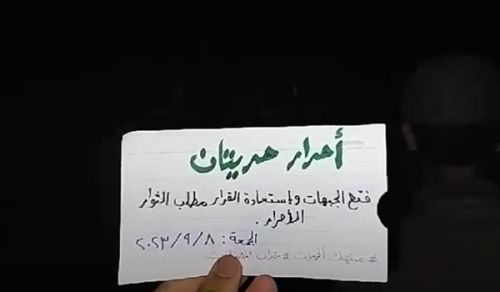 أحرار حريتان
فتح الجبهات وإستعادة القرار مطلب الثوار
الأحرار .
الجمعة : ٢٠٢٣/٩/٨